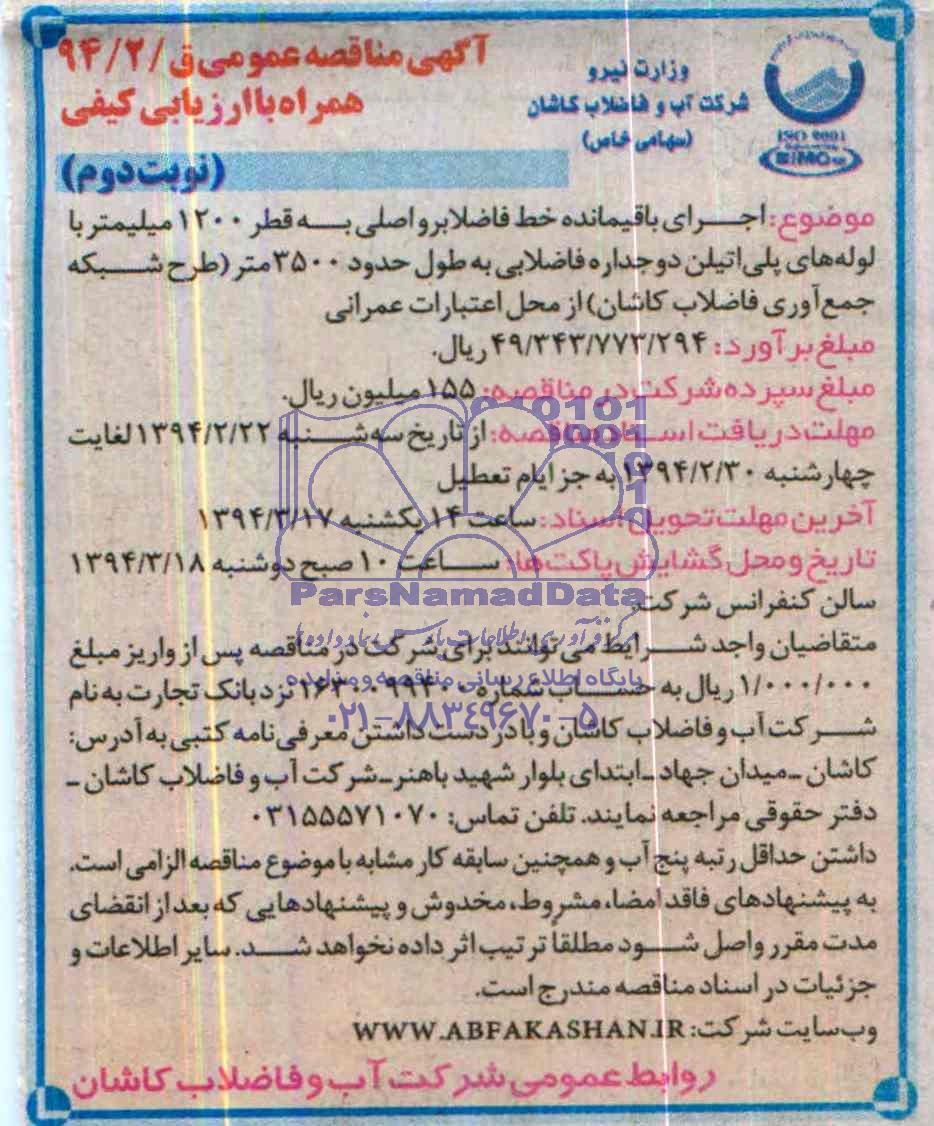 آگهی مناقصه عمومی ق/۹۴/۲
همراه با ارزیابی کیفی
(نوبت دوم)
وزارت نیرو
شرکت آب و فاضلاب کاشان
(سهامی خاص)
ISO 9001
SIMC
موضوع: اجرای باقیمانده خط فاضلابرو اصلی به قطر ۱۲۰۰ میلیمتر با
لوله‌های پلی اتیلن دوجداره فاضلابی به طول حدود ۳۵۰۰ متر (طرح شبکه
جمع آوری فاضلاب کاشان) از محل اعتبارات عمرانی
مبلغ برآورد: ۴۹/۳۴۳/۷۷۳/۲۹۴ ریال.
مبلغ سپرده شرکت در مناقصه: ۱۵۵ میلیون ریال.
مهلت دریافت اسناد مناقصه: از تاریخ سه شنبه ۱۳۹۴/۲/۲۲ لغایت
چهارشنبه ۱۳۹۴/۲/۳۰ به جز ایام تعطیل
آخرین مهلت تحویل اسناد: ساعت ۱۴ یکشنبه ۱۳۹۴/۳/۱۷
تاریخ و محل گشایش پاکت‌ها: ساعت ۱۰ صبح دوشنبه ۱۳۹۴/۳/۱۸
سالن کنفرانس شرکت.
متقاضیان واجد شرایط می توانند برای شرکت در مناقصه پس از واریز مبلغ
۱/۰۰۰/۰۰۰ ریال به حساب شماره نزد بانک تجارت به نام
شرکت آب و فاضلاب کاشان و با در دست داشتن معرفی نامه کتبی به آدرس:
کاشان ـ میدان جهاد ـ ابتدای بلوار شهید باهنر ـ شرکت آب و فاضلاب کاشان ـ
دفتر حقوقی مراجعه نمایند. تلفن تماس: ۰۳۱۵۵۵۷۱۰۷۰
داشتن حداقل رتبه پنج آب و همچنین سابقه کار مشابه با موضوع مناقصه الزامی است.
به پیشنهادهای فاقد امضا، مشروط، مخدوش و پیشنهادهایی که بعد از انقضای
مدت مقرر واصل شود مطلقاً ترتیب اثر داده نخواهد شد. سایر اطلاعات و
جزئیات در اسناد مناقصه مندرج است.
وب سایت شرکت: WWW.ABFAKASHAN.IR
روابط عمومی شرکت آب و فاضلاب کاشان
ParsNamadData
مرکز فرآوری اطلاعات پارس نماد داده ها
پایگاه اطلاع رسانی مناقصه و مزایده
۰۲۱-۸۸۳۴۹۶۷۰-۵